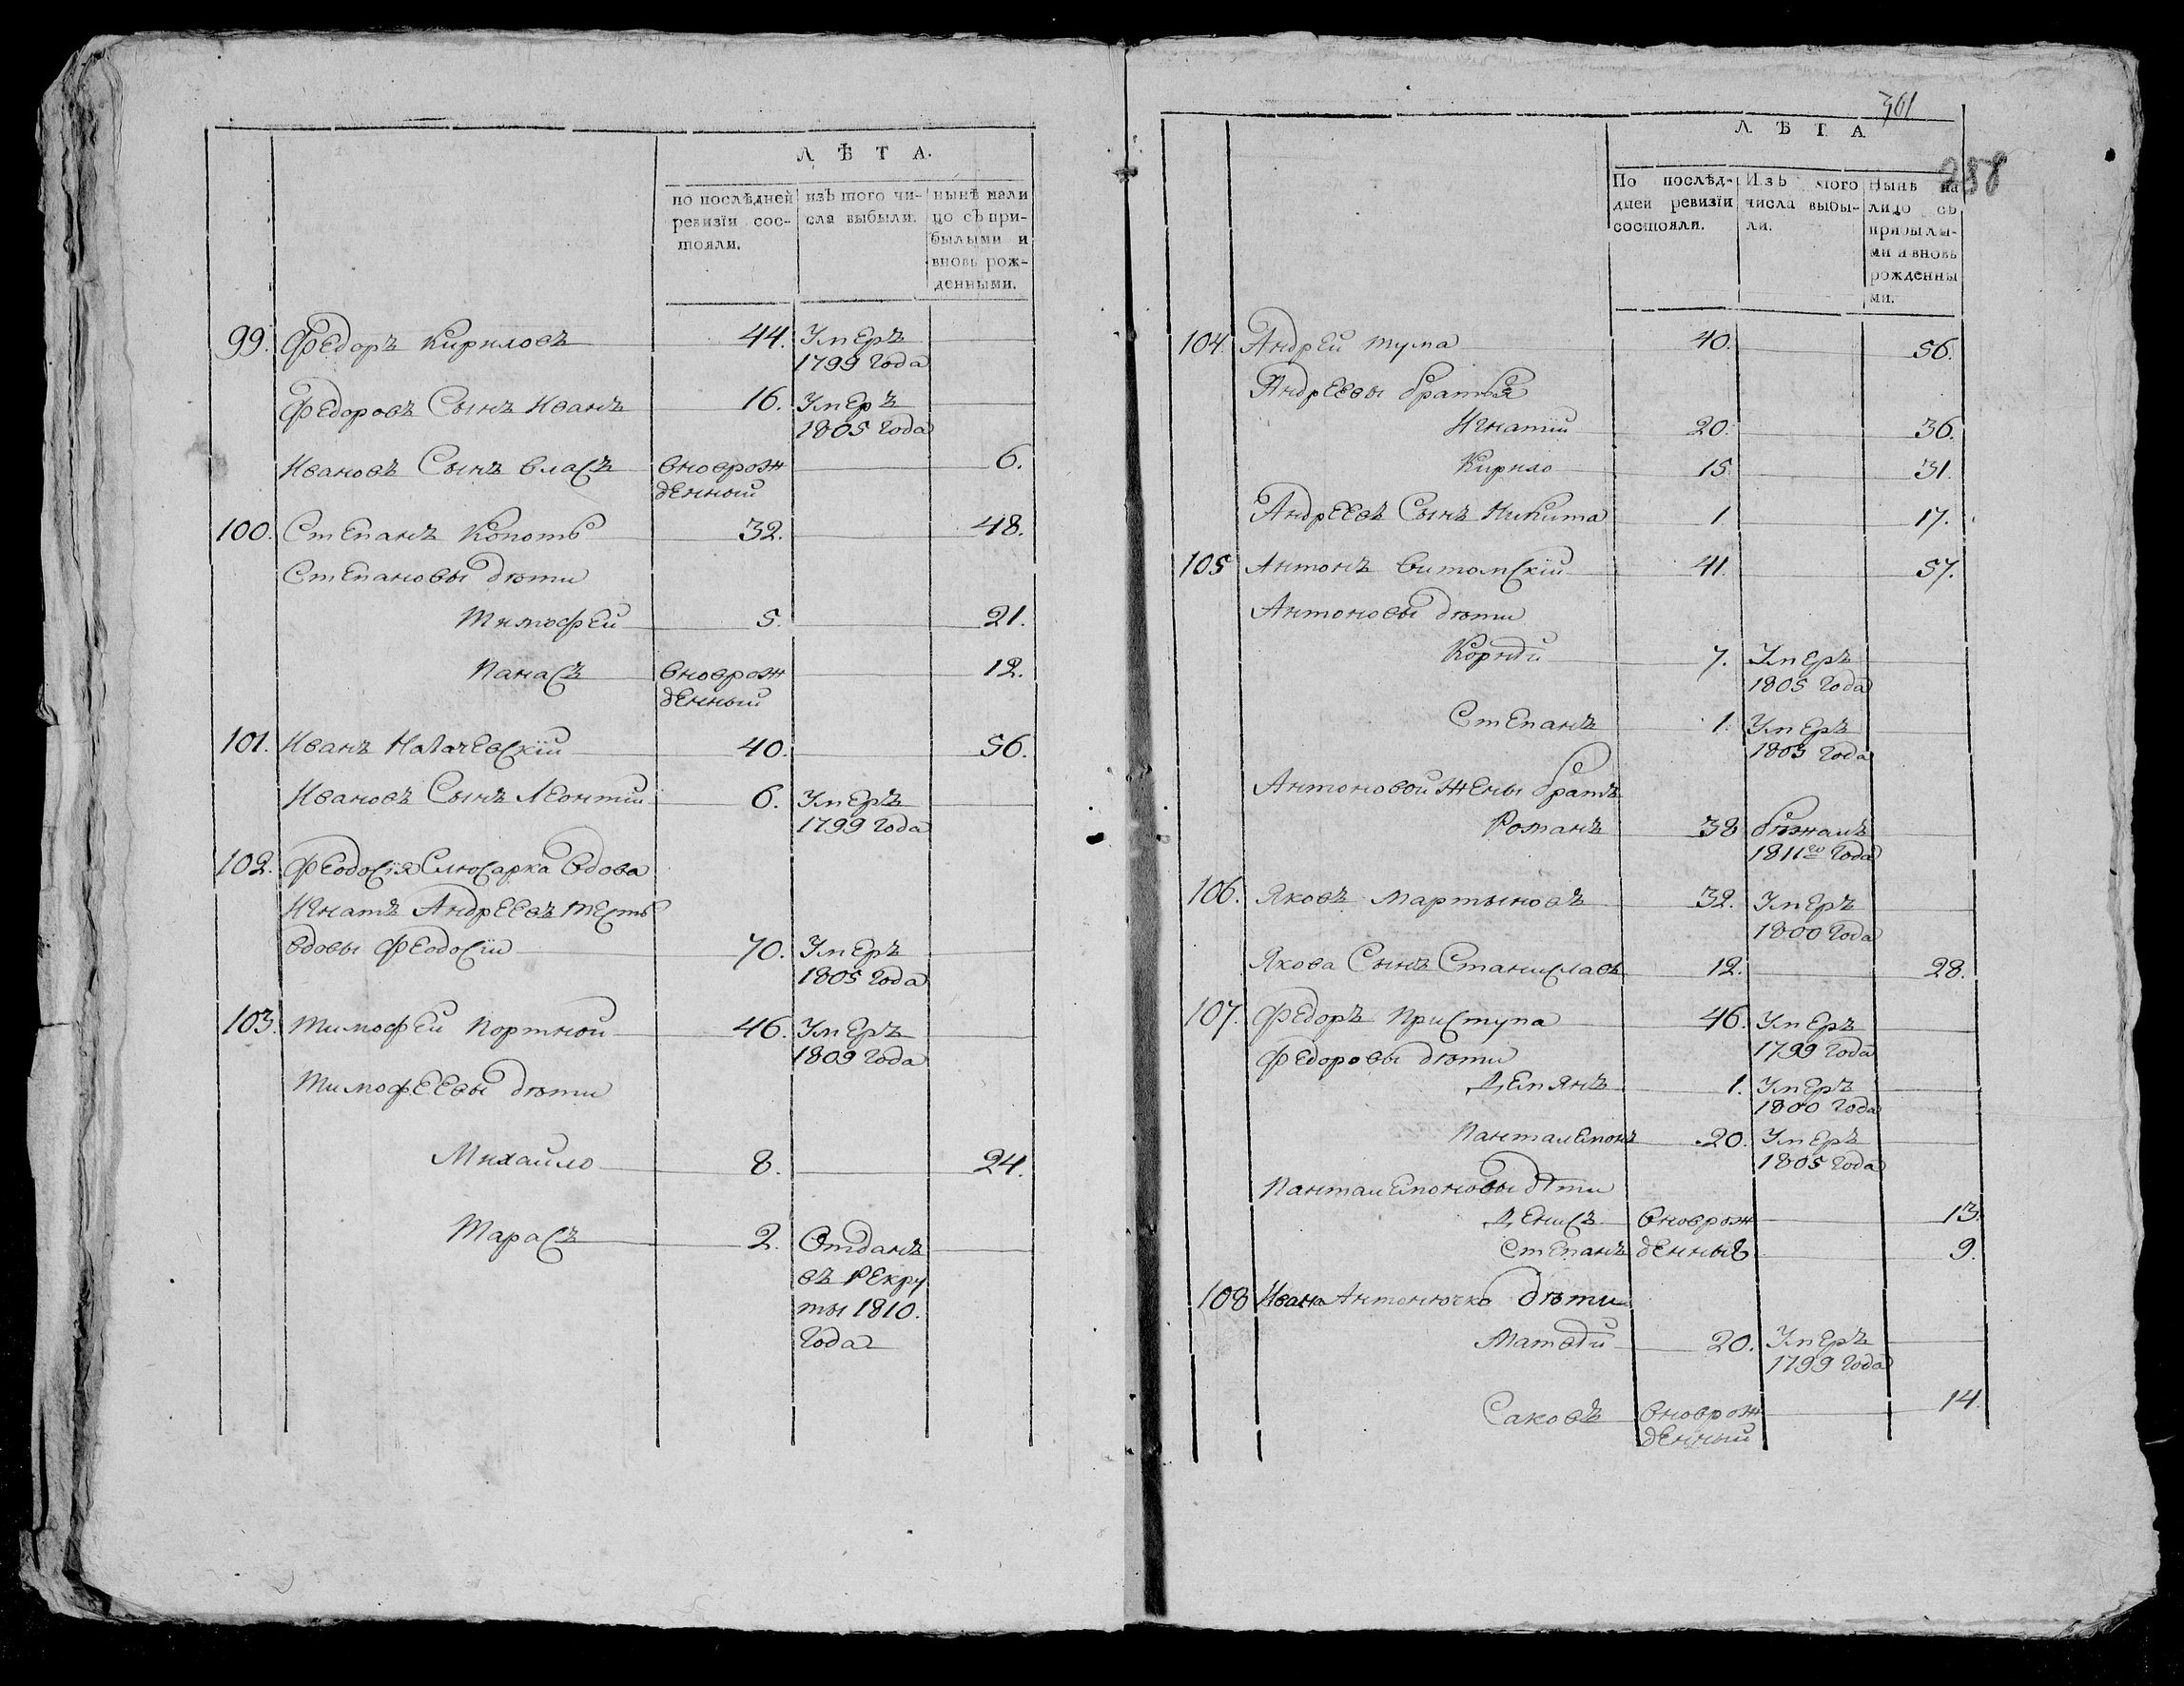 Л Ѣ Т А.
по послѣдней ревизïи состояли.
изъ того числа выбыли.
нынѣ нали цо съ прибылыми и вновь рожденными.
99. Федоръ Кириловъ 44. Умеръ
1799 года
Федоровъ Сынъ Иванъ 16. Умеръ
1805 года
Ивановъ Сынъ Власъ вноврож 6.
денной
100. Степанъ Копоть 32. 48.
Степановы дѣти
Тимофей 5. 21.
Панасъ вноврож 12.
денный
101. Иванъ 40. 56.
Ивановъ Сынъ Леонтïй 6. Умеръ
1799 года
102. Феодосïя Слюсарка вдова
Игнатъ Андреевъ тесть
вдовы Феодосïи 70. Умеръ
1805 года
103. Тимофей Портной 46. Умеръ
1809 года
Тимофеевы дѣти
Михайло 8. 24.
Тарасъ 2. Отданъ
въ рекру
ты 1810.
года
301
288
Л Ѣ Т А
По послѣдней ревизïи состояли.
Изъ того числа выбыли.
Нынѣ на лицо съ прибылыми и вновь рожденными.
104. Андрей Тупа 40. 56.
Андреевы братья
Игнатïй 20. 36.
Кирило 15 31.
Андреевъ Сынъ Никита 1 17.
105 Антонъ Витомскïй 41. 57.
Антоновы дѣти
Корнѣй 7. Умеръ
1805 года
Степанъ 1. Умеръ
1803 года
Антоновой жены братъ
Романъ 38 бѣжалъ
1811го года
106. Яковъ Мартыновъ 32. Умеръ
1800 года
Якова Сынъ Станиславъ 12. 28.
107. Федоръ Приступа 46. Умеръ
1799 года
Федоровы дѣти
Демянъ 1. Умеръ
1800 года
Панталемонъ 20. Умеръ
1805 года
Панталемоновы дѣти
Денисъ вноврож 13.
Степанъ денныѣ 9.
108 Ивана Антонючка дѣти
Матвѣй 20. Умеръ
1799 года
Саковъ вноврож 14.
денный